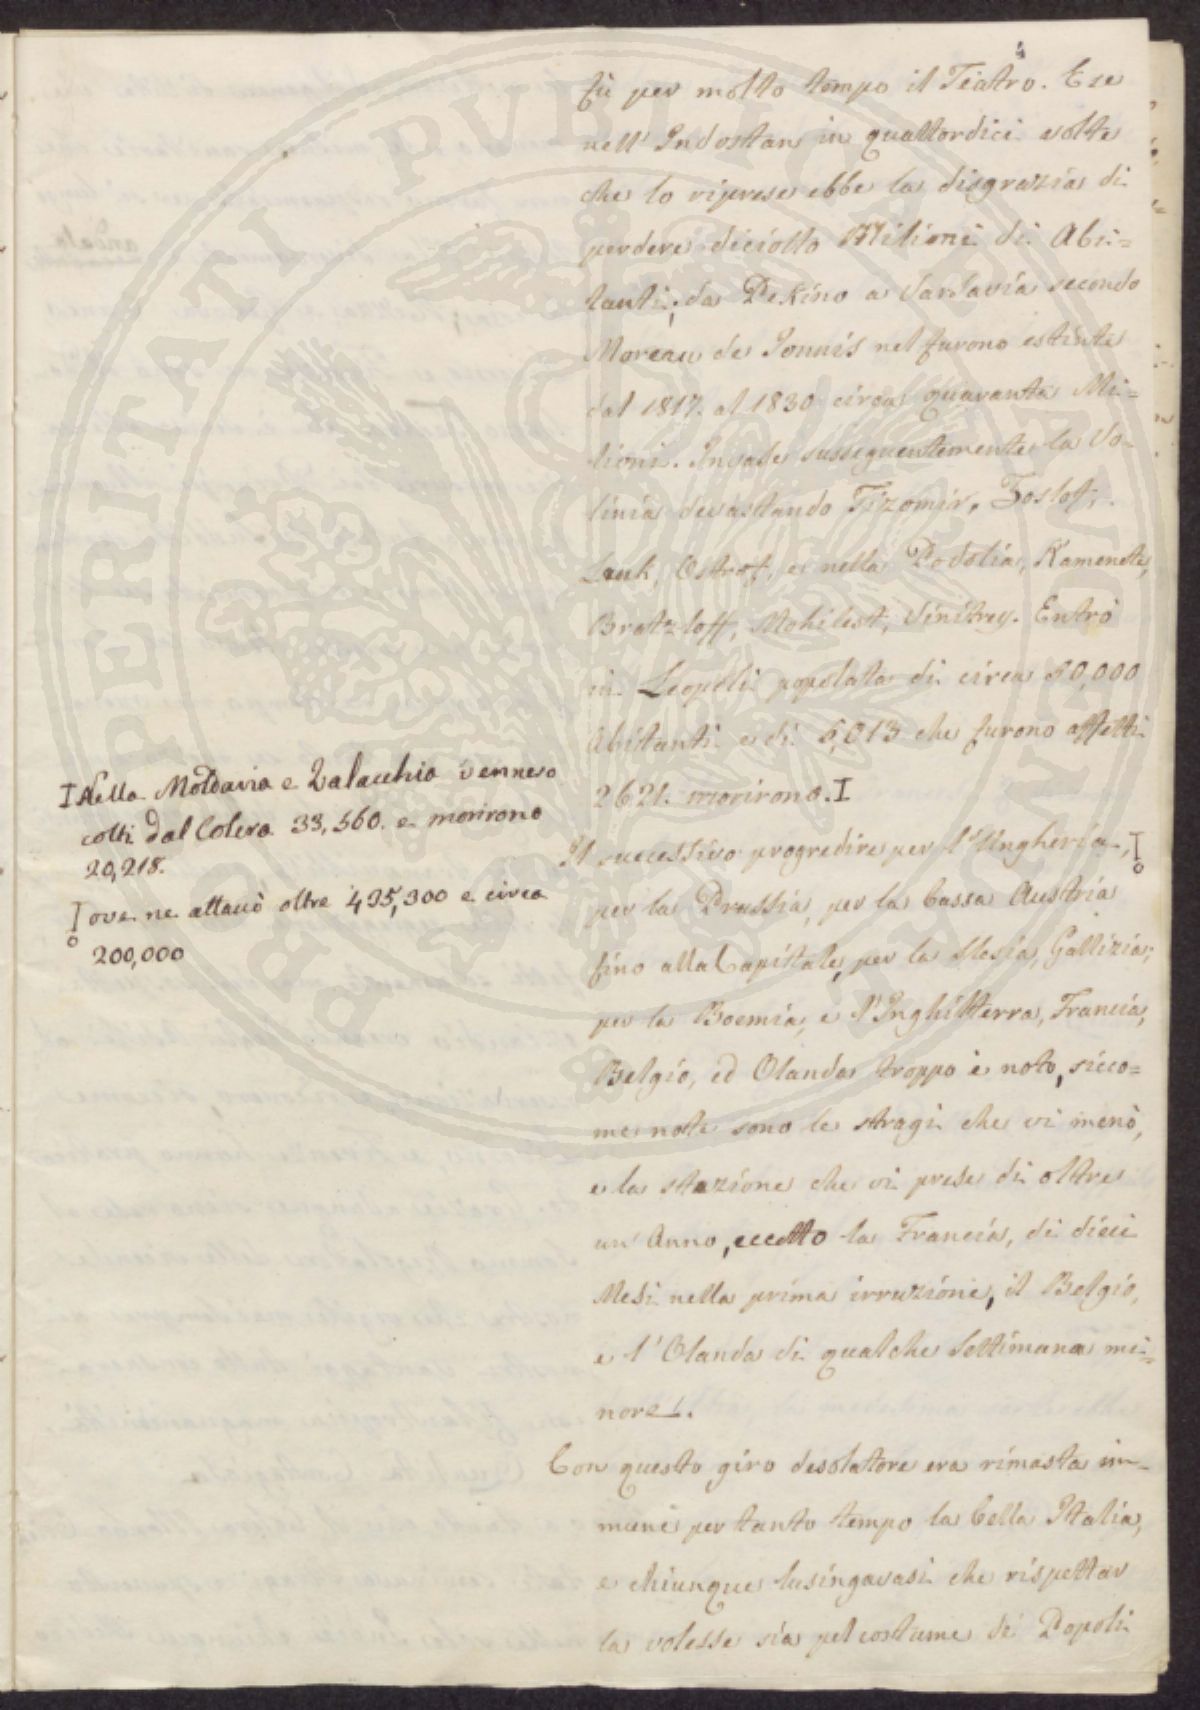 fù per molto tempo il Teatro. E se
nell'Indostan in quattordici volte
che lo riprese ebbe la disgrazia di
perdere diciotto Milioni di Abi=
tanti; da Pekino a Varsavia secondo
Moreau de Jonnis nel furono estinte
dal 1817. al 1830 circa quaranta Mi=
lioni. Invase susseguentemente la Vo-
linia devastando Tizomir, Zoslof,
Luuk, Ostrof, e nella Podolia, Kamenets,
Bratzloff, Mohilest, Vinitrey. Entrò
in Leopoli popolata di circa 80,000
Abitanti e di 5,013 che furono affetti
2621. morirono. I
I Nella Moldavia e Valacchia vennero
colti dal Colera 33,560. e morirono
20,218.
Il successivo progredire per l'Ungheria, I
o
I ove ne attaccò oltre 435,300 e circa
o
200,000
per la Prussia, per la bassa Austria
fino alla Capitale, per la Slesia, Gallizia;
per la Boemia, e l'Inghilterra, Francia,
Belgio, ed Olanda troppo è noto, sicco=
me note sono le stragi che vi menò,
e la stazione che vi prese di oltre
un'Anno, eccetto la Francia, di dieci
Mesi nella prima irruzione, il Belgio,
e l'Olanda di qualche Settimana mi=
nore.
Con questo giro desolatore era rimasta im-
mune per tanto tempo la bella Italia,
e chiunque lusingavasi che rispettar
la volesse sia pel costume di Popoli
PROPERITATI PVBLICAE